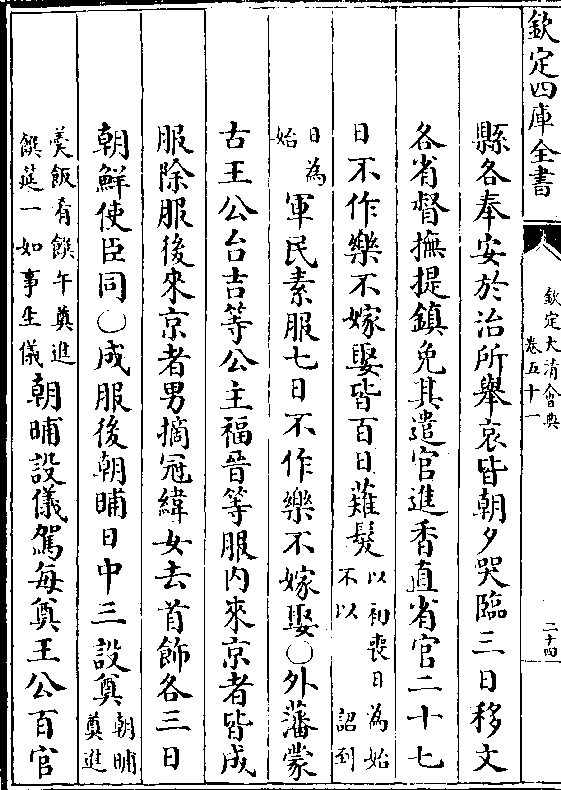 欽定四庫全書
欽定大清會典
卷五十一
二十四
縣各奉安於治所舉哀皆朝夕哭臨三日移文
各省督撫提鎮免其遣官進香直省官二十七
日不作樂不嫁娶皆百日薙髮以初喪日為始不以詔到
日為始軍民素服七日不作樂不嫁娶〇外藩蒙
古王公台吉等公主福晉等服內來京者皆成
服除服後來京者男摘冠緯女去首飾各三日
朝鮮使臣同〇成服後朝晡日中三設奠朝晡奠進
羹飯肴饌午奠進饌筵一如事生儀朝晡設儀駕每奠王公百官